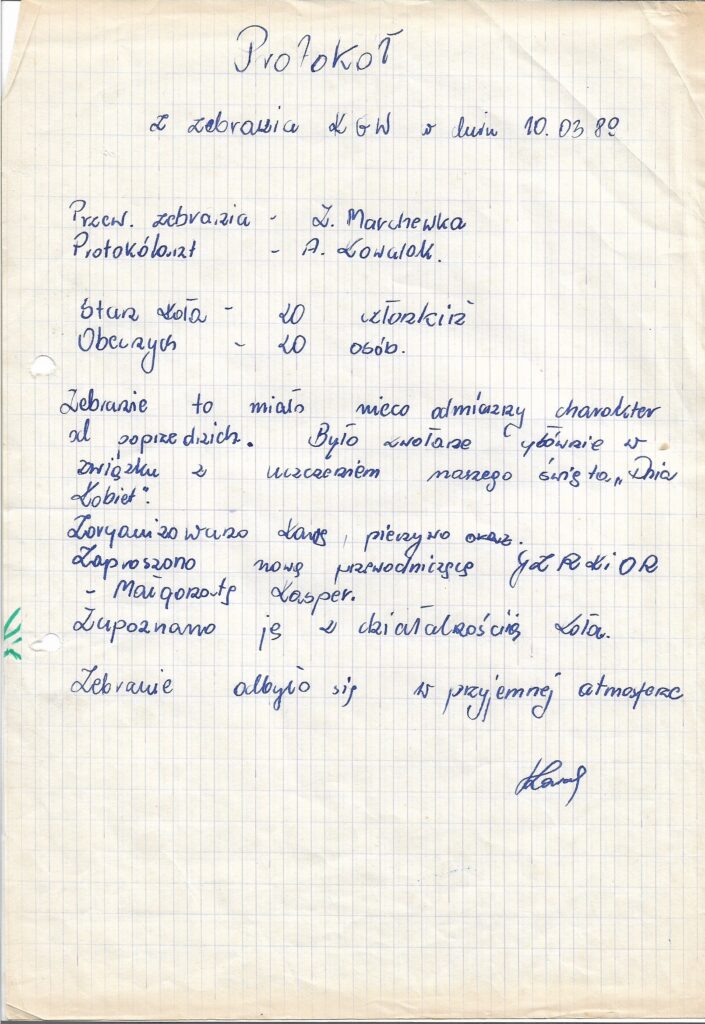 Protokoł
z zebrania KGW w dniu 10.03 89
Przew. zebrania - Z. Marchewka
Protokólant - A. Kowalok.
Stan Koła - 20 członkiń
Obecnych - 20 osób.
Zebranie to miało nieco odmienny charakter
od poprzednich. Było zwołane głównie w
związku z uczczeniem naszego święta „Dnia
Kobiet".
Zorganizowano kawę, pieczywo oraz.
Zaproszono nową przewodniczącą GZRKiOR
- Małgorzatę Kasper.
Zapoznano ją z działalnością koła.
Zebranie odbyło się w przyjemnej atmosferze